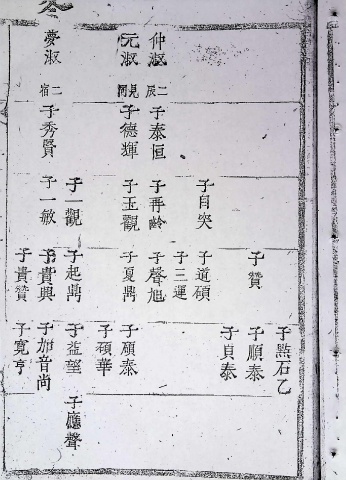 仲淑 二辰
元淑 見
夢淑 二宿
子泰恒
子德輝
子秀賢
子自突
子再齡
子玉觀
子一觀
子一敏
子贊
子道碩
子三運
子聲旭
子夏鼎
子起鼎
子貴興
子貴贊
子點石乙
子順泰
子貞泰
子願泰
子碩華
子益
子廳聲
子加音尚
子寬亨